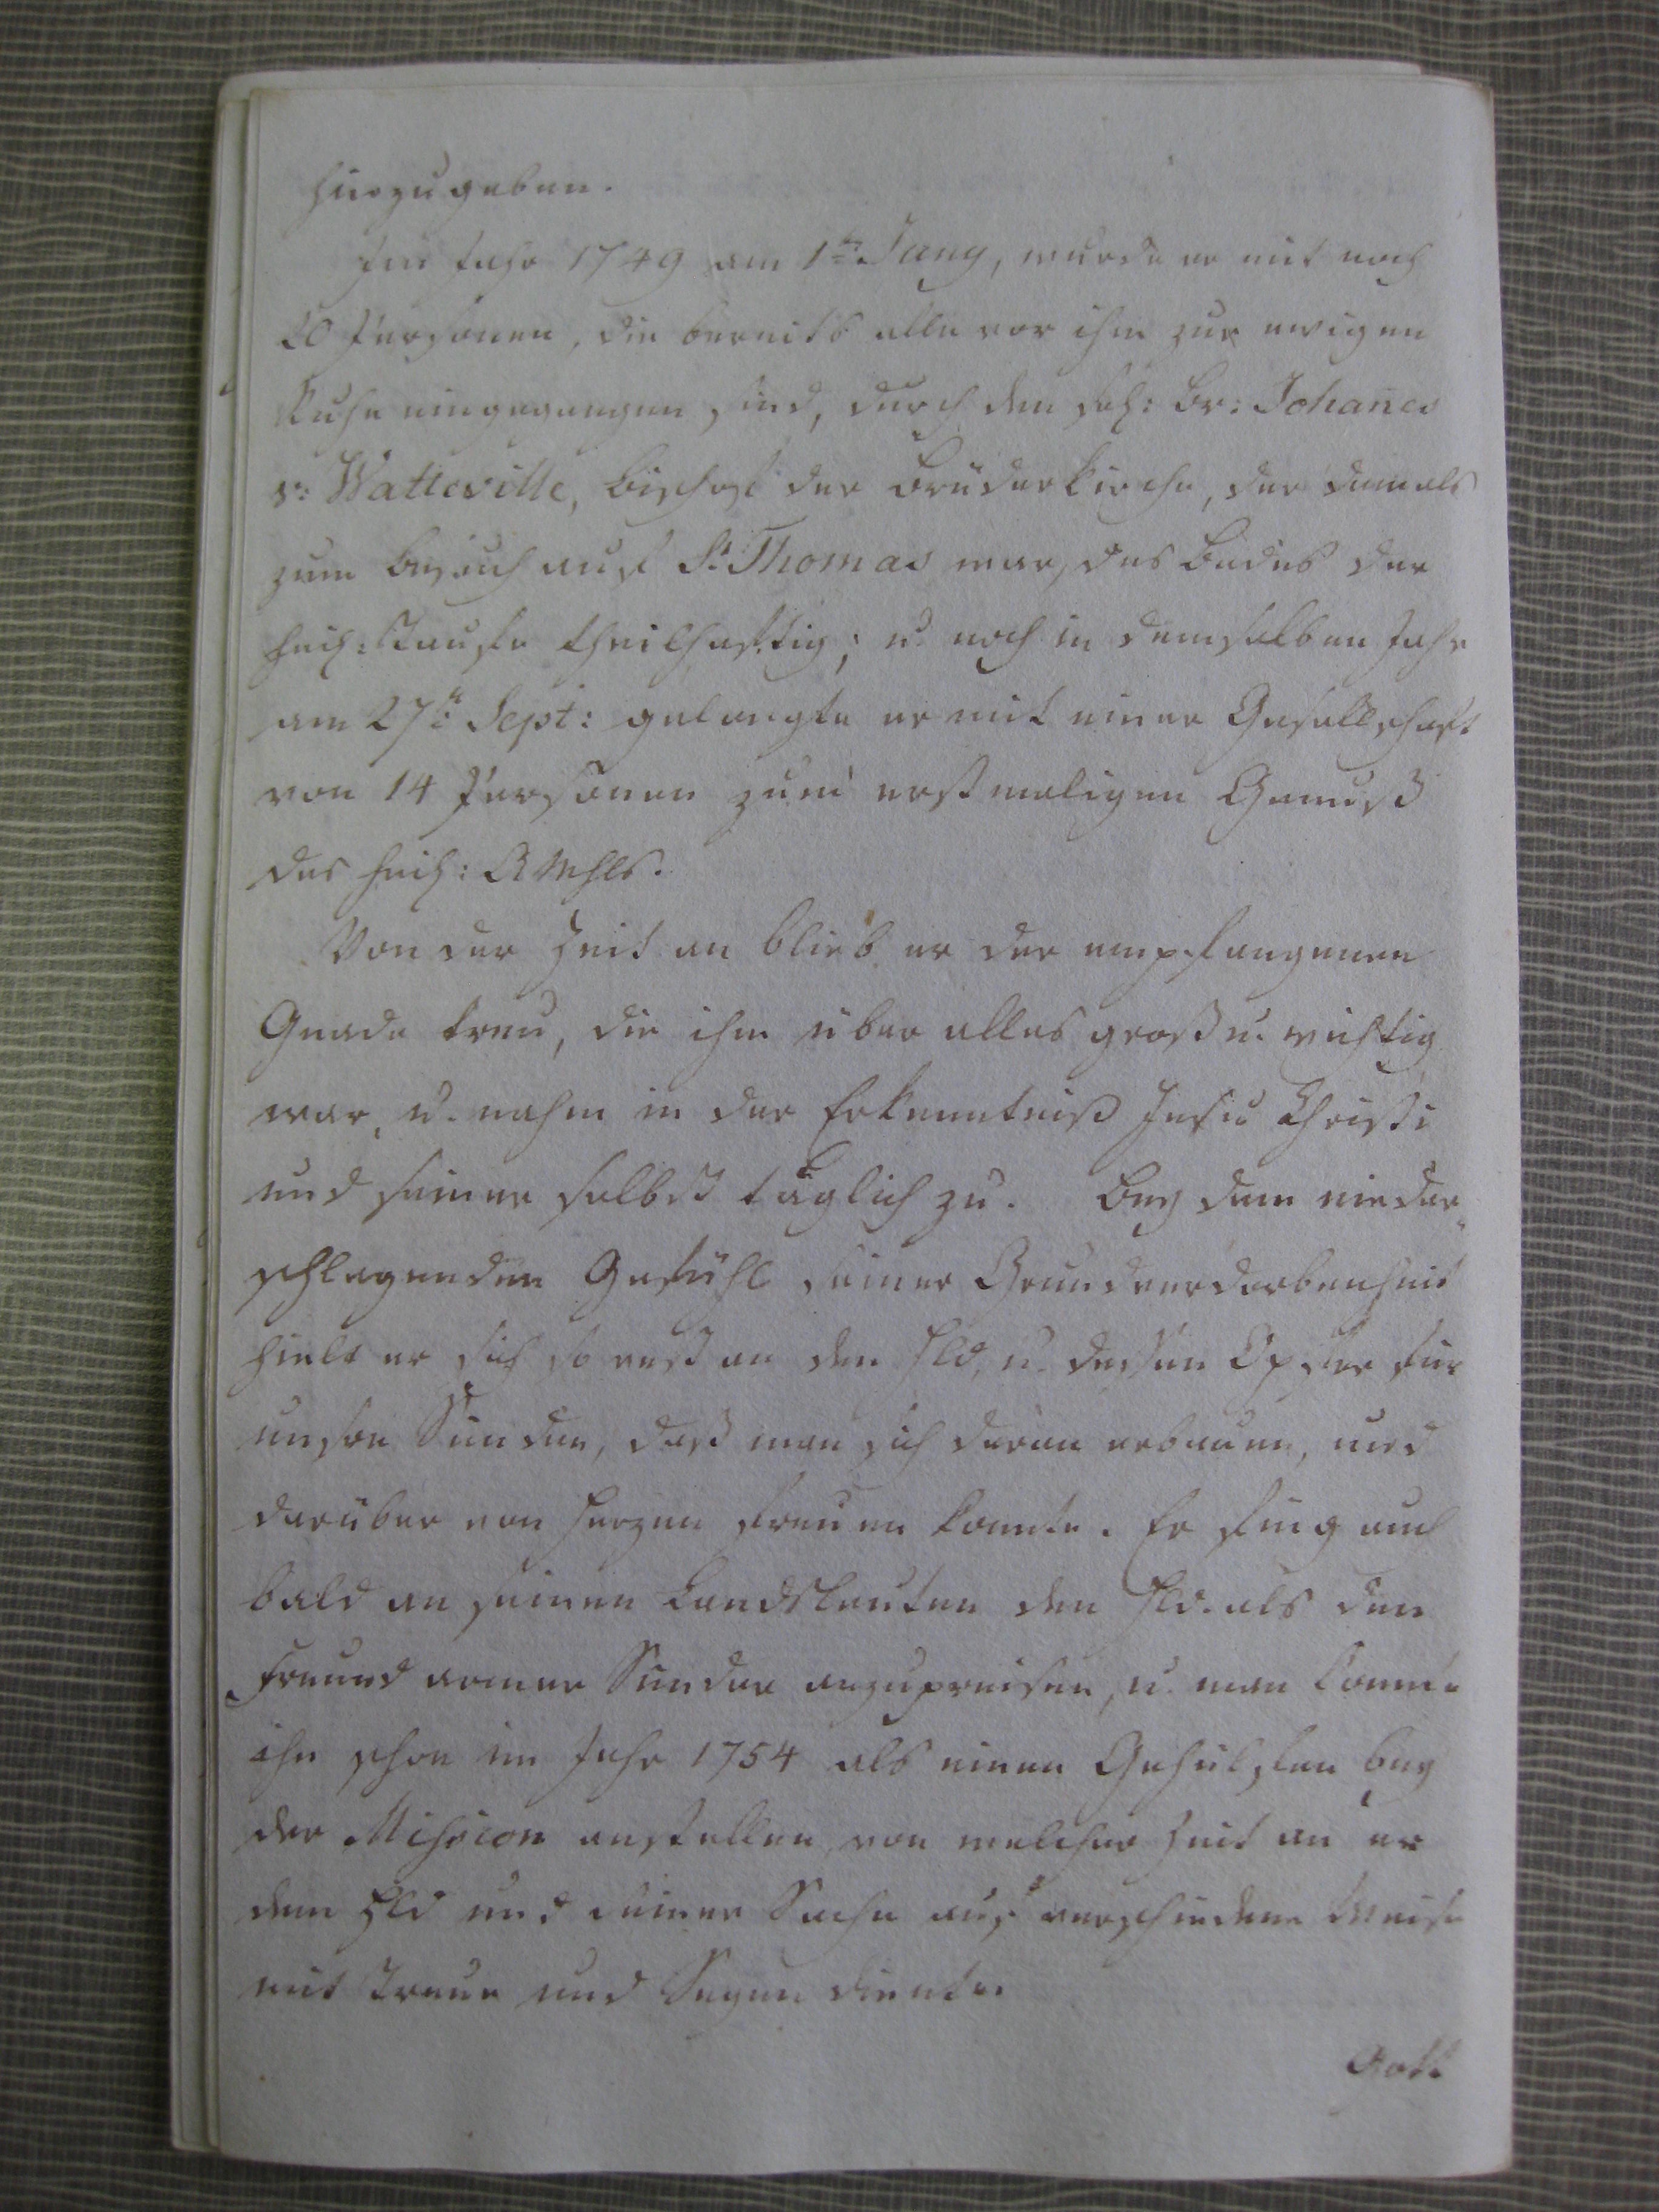 hinzugeben.
Im Jahr 1749 am 1ten Juny, wurde er mit noch
20 Personen, die bereits alle vor ihm zur ewigen
Ruhe eingegangen sind, durch den sel: Br: Johanes
v: Watteville, Bischof der Brüderkirche, der damals
zum Besuch auf St. Thomas war, des Bades der
heil: Taufe theilhaftig; u. noch in demselben Jahr
am 27ten Sept: gelangte er mit einer Gesellschaft
von 14 Personen zum erstmaligen Genuß
des heil: AMhls.
Von der Zeit an blieb er der empfangenen
Gnade treu, die ihm über alles groß u. wichtig
war, u. nahm in der Erkenntniß Jesu Christi
und seiner selbst täglich zu. Bey dem nieder-
schlagenden Gefühl seiner Grundverdorbenheit
hielt er sich so vest an den Hld, u. dessen Opfer für
unsre Sünden, daß man sich daran erbauen, und
darüber von Herzen freuen konnte. Er fing auch
bald an seinen Landsleuten den Hld. als den
Freund armer Sünder anzupreisen, u. man konnte
ihn schon im Jahr 1754 als einen Gehülfen bey
der Mission anstellen, von welcher Zeit an er
dem Hld und seiner Sache auf verschiedene Weise
mit Treue und Segen diente.
Gott